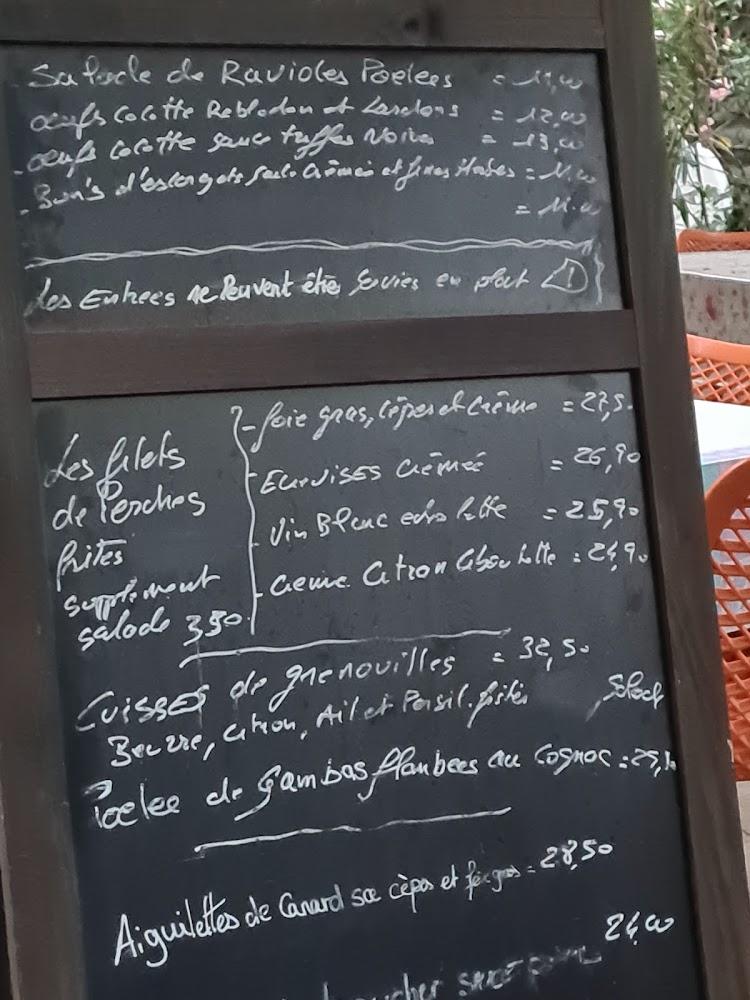 Salade de Ravioles Poelees = 11,00
œufs cocotte Reblodon et Lardons = 12,00
- œufs cocotte sauce truffes Noire = 13,00
- Bun's d'escargots sauce crèmés et fines Herbes = 11.00
= 11.00
Les Entrees ne Peuvent être servies en plat
Les filets de Perches frites supplément salade 350
- foie gras, cèpes et crème = 27,5
- Ecrevisses crèmée = 26,90
- Vin Blanc echalotte = 25,90
- creme Citron Ciboulette = 24,90
Cuisses de grenouilles = 32,50
Beurre, citron, Ail et Persil. frites Salad
Poelee de gambas flambees au Cognac =
Aiguilettes de Canard sce cèpes et = 28,50
24,00
sauce